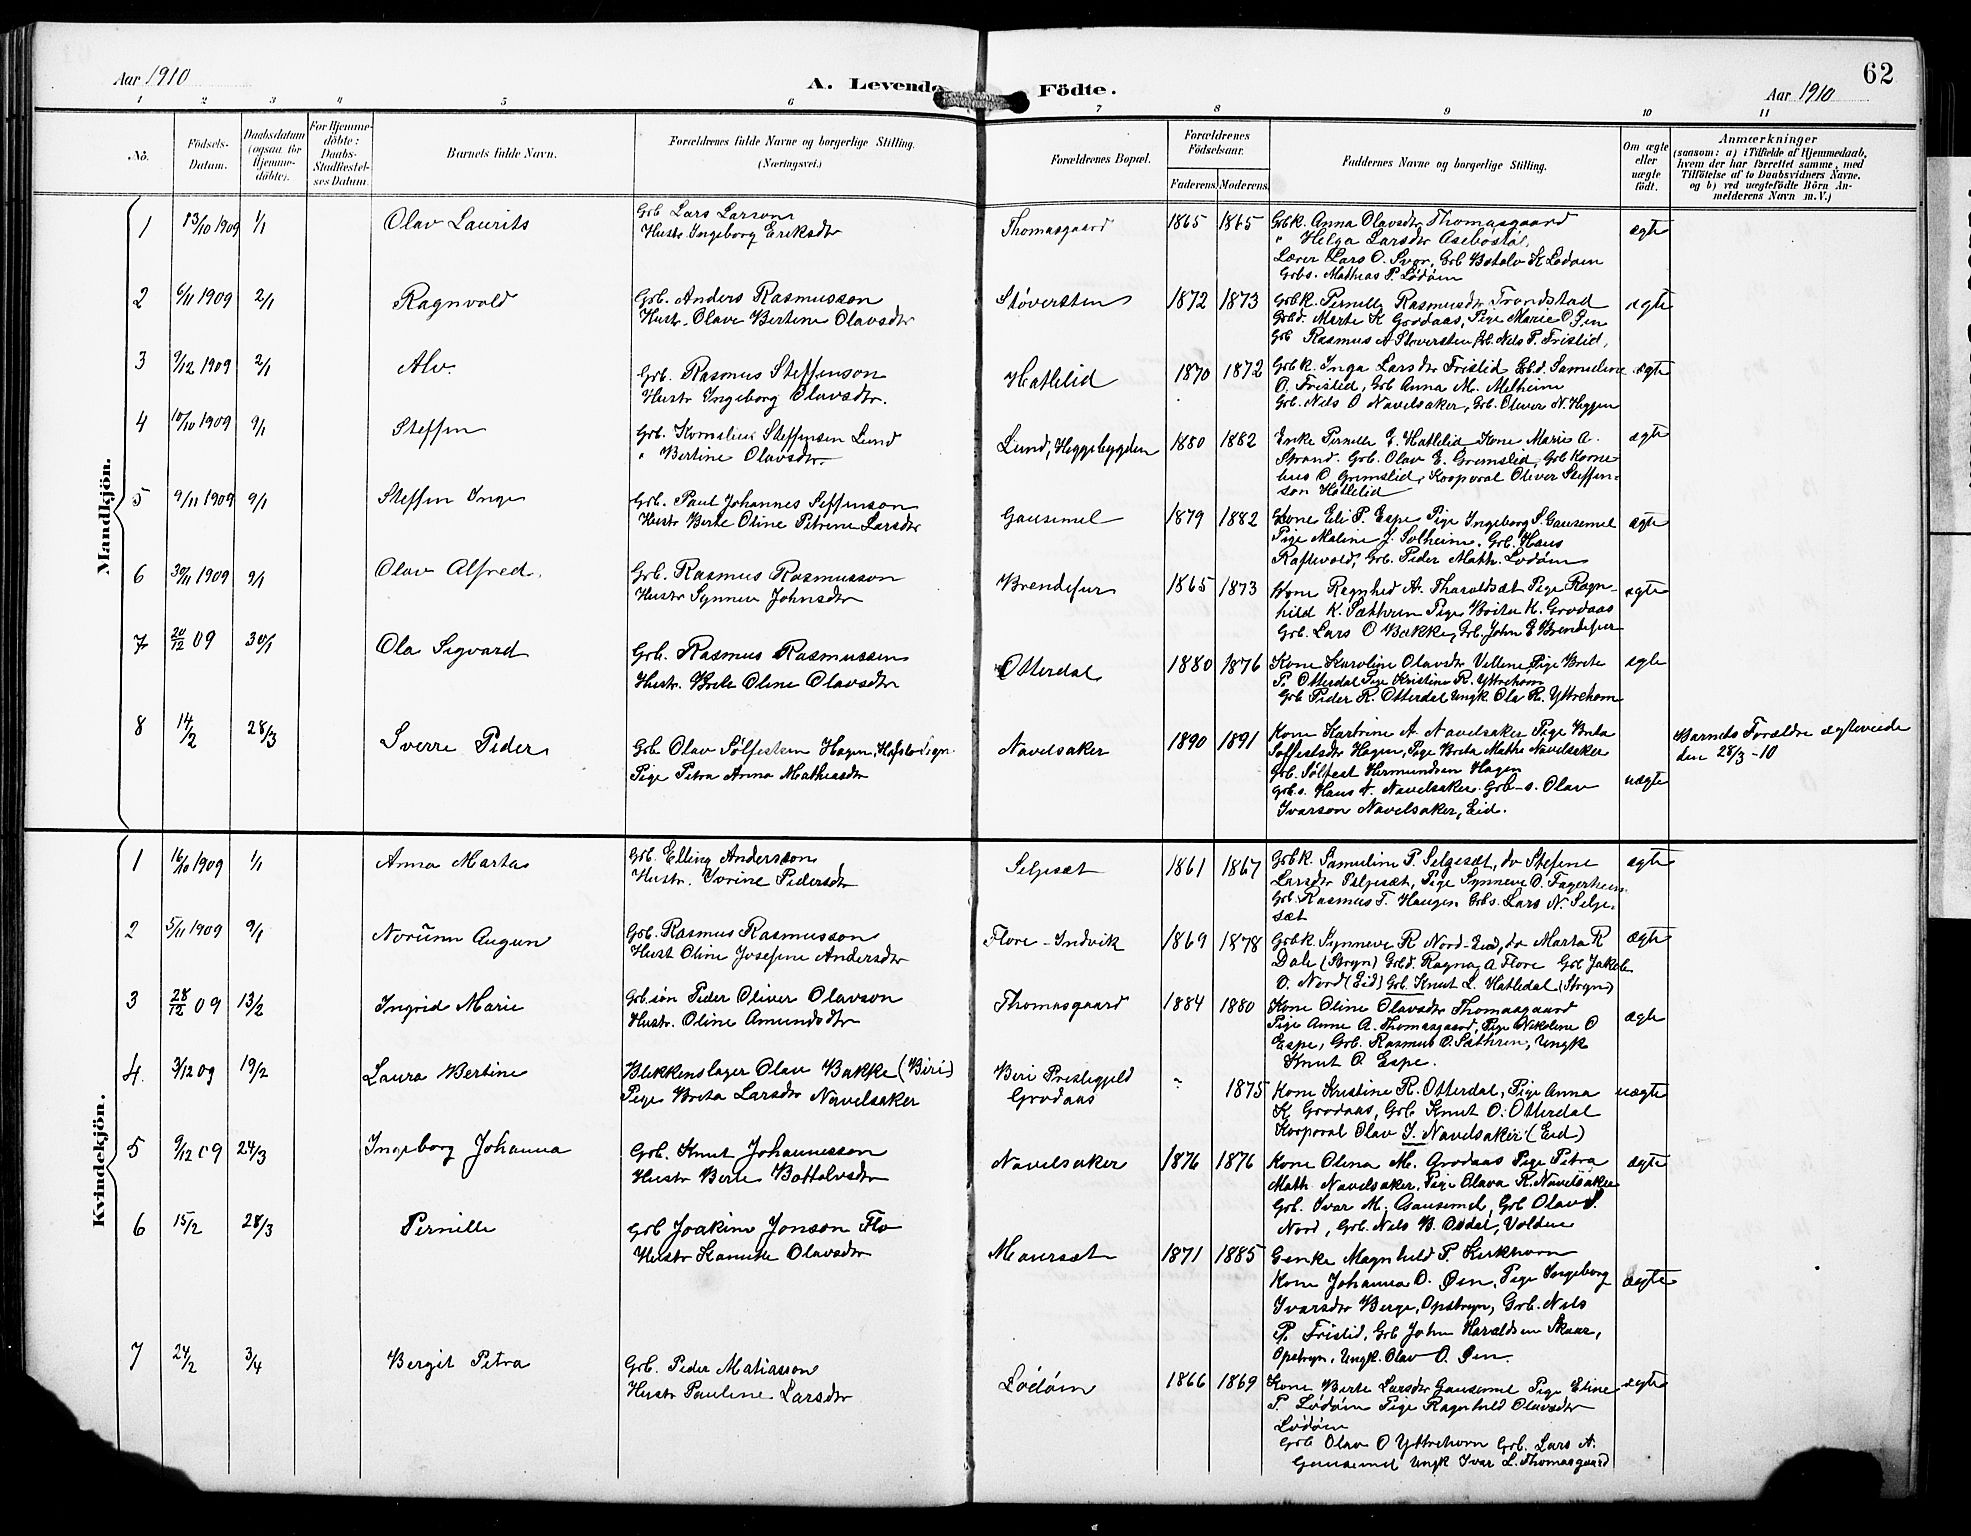 62
Aar 1910
A. Levende Födte.
Aar 1910
1 2 3 4 5 6 7 8 9 10 11
No.
Födsels-Datum.
Daabsdatum (ogsaa for Hjemmedöbte).
For Hjemmedöbte: Daabs-Stadfæstelses Datum.
Barnets fulde Navn.
Forældrenes fulde Navne og borgerlige Stilling. (Næringsvei.)
Forældrenes Bopæl.
Forældrenes Födselsaar.
Faderens. Moderens.
Faddernes Navne og borgerlige Stilling.
Om ægte eller uægte födt.
Anmærkninger
(saasom: a) i Tilfælde af Hjemmedaab, hvem der har forrettet samme, med Tilföielse af to Daabsvidners Navne. og b) ved uægtefödte Börn Anmelderens Navn m. V.)
Mandkjön.
1 13/10 1909 1/1 Olav Laurits Grb Lars Larson Thomasgaard 1865 1865 Grbk. Anna Olavsdtr Thomasgaard ægte
Hustr. Ingeborg Eriksdtr " Helga Larsdtr Aasebøstøl,
Lærer Lars O. Svor, Grb Botolv K Lødøm
Grbs. Mathias P. Lødøm
2 6/11 1909 2/1 Ragnvald Grb. Anders Rasmusson Støversten 1872 1873 Grbk. Pernille Rasmusdtr Trandstad ægte
Hustr. Olave Bertine Olavsdtr Grbd. Marte K Grodaas, Pige Marie O Øen
Grb Rasmus A Støversten Grb. Nils P. Fristid,
3 9/12 1909 2/1 Alv. Grb. Rasmus Steffenson Hatlelid 1870 1872 Grbk. Inga Larsdtr Fristid Grbd. Samueline ægte
Hustr Ingeborg Olavsdtr. O. Fristid, Grb Anna M. Melheim
Grb. Nils O Navelsaker, Grb. Oliver N. Heggen
4 10/10 1909 9/1 Steffen Grb. Kornelius Steffensen Lund Lund, Heggebygden 1880 1882 Enke Pernille E. Hatlelid Kone Marie A. ægte
" Bertine Olavsdtr. Strand. Grb. Olav E. Gremslid, Grb Korne
lius O Grimslid, Kooporal Oliver Steffen-
son Hatlelid
5 9/11 1909 9/1 Steffen Inge Grb. Paul Johannes Seffenson Gausemel 1879 1882 Kone Eli P. Espe Pige Ingeborg S. Gausemel ægte
Hustr Berte Oline Petrine Larsdtr Pige Maline J. Solheim. Grb. Hans
Raftevold, Grb. Peder Math. Lødøm
6 30/11 1909 9/1 Olav Alfred. Grb. Rasmus Rasmusson Brendefur 1865 1873 Kone Regnhed A. Tharaldsæt Pige Ragn- ægte
Hustr Synneve Johnsdtr hild K. Sæthren Pige Brita K. Grodaas
Grb. Lars O Bakke, Grb. John E Brendefur
7 20/12 09 30/1 Ola Sigvard Grb. Rasmus Rasmussen Otterdal 1880 1876 Kone Karoline Olavsdtr Vellene, Pige Brite ægte
Hustr. Brite Oline Olavsdtr P. Otterdal Pige Kristine R. Yttrehorn
Grb Peder R. Otterdal Ungk Ola R. Yttrehorn
8 14/2 28/3 Sverre Peder Grb Olav Sølfestsen Hagen, Hafslo Sogn. Navelsaker 1890 1891 Kone Katrine A. Navelsaker Pige Brita Barnets Forældre ægteviede
Pige Petra Anna Mathiasdtr Solfestsdtr Hagen, Pige Brita Mathe Navelsaker den 28/3 -10
Grb. Sølfest Hermundsen Hagen uægte
Grb.s. Hans N. Navelsaker. Grb-s. Olav
Ivarson Navelsaker, Eid.
Kvindekjön.
1 16/10 1909 1/1 Anna Marta Grb. Elling Anderson Seljeset 1861 1867 Grbk. Samueline P. Seljesæt, do Stefine ægte
Hustr. Iverine Pedersdtr Larsdtr Seljesæt, Pige Synneve O. Fagerheim
Grb. Rasmus T. Haugen Grbs. Lars N. Selje-
sæt
2 5/11 1909 9/1 Norunn Augun Grb. Rasmus Rasmusson Flore - Indvik 1869 1878 Grbk. Synneve R Nord-Eid, do Marta R ægte
Hust Oline Josefine Andersdtr Dale (Stryn) Grbd. Ragna A Flore Grb Jakob
O. Nord (Eid) Grb. Knut L. Hatledal (Stryn)
3 28/12 09 13/2 Ingrid Marie Grb.søn Peder Oliver Olavson Thomasgaard 1884 1880 Kone Oline Olavsdtr Thomasgaard ægte
Hustr. Oline Amundsdtr Pige Anne A. Thomasgaard, Pige Nikoline O
Espe, Grb. Rasmus O. Sæthren, Ungk
Knut O. Espe.
4. 3/12 09 19/2 Laura Bertine Blikkenslager Olav Bakke (Biri) Biri Prestegjeld " 1875 Kone Kristine R. Otterdal, Pige Anna uægte
Pige Brita Larsdtr Navelsaker Grodaas K Grodaas, Grb. Knut O. Otterdal
Korporal Olav I. Navelsaker (Eid.)
5 9/12 09 24/3 Ingeborg Johanna Grb. Knut Johannesson Navelsaker 1876 1876 Kone Olina M. Grodaas Pige Petra ægte
Hustr Berte Bottolvsdtr Math. Navelsaker, Pige Olava R. Navelsaker
Grb. Ivar M. Gausemel, Grb Olav S.
Nord, Grb. Nils B. Osdal, Volden
6 15/2 28/3 Pernille Grb Joakim Jonson Flo Maurset 1871 1885 Enke Magnhild P. Kirkhorn ægte
Hustr Kanutte Olavsdtr Kone Johanna O. Øen, Pige Ingeborg
Ivarsdtr Berge, Opstryn, Grb. Nils
P. Fristid, Grb John Haraldsen Skaar,
Opstryn, Ungk. Olav O. Øen.
7 24/2 3/4 Bergit Petra Grb. Peder Matiasson Lødøm 1866 1869 Kone Berte Larsdtr Gausemel Pige Eline ægte
Hustr Pauline Larsdtr P. Lødøm Pige Ragnhild Olavsdtr
Lødøm
Grb Olav O Yttrehorn Grb. Lars A.
Gausemel Ungk Ivar L. Thomasgaard